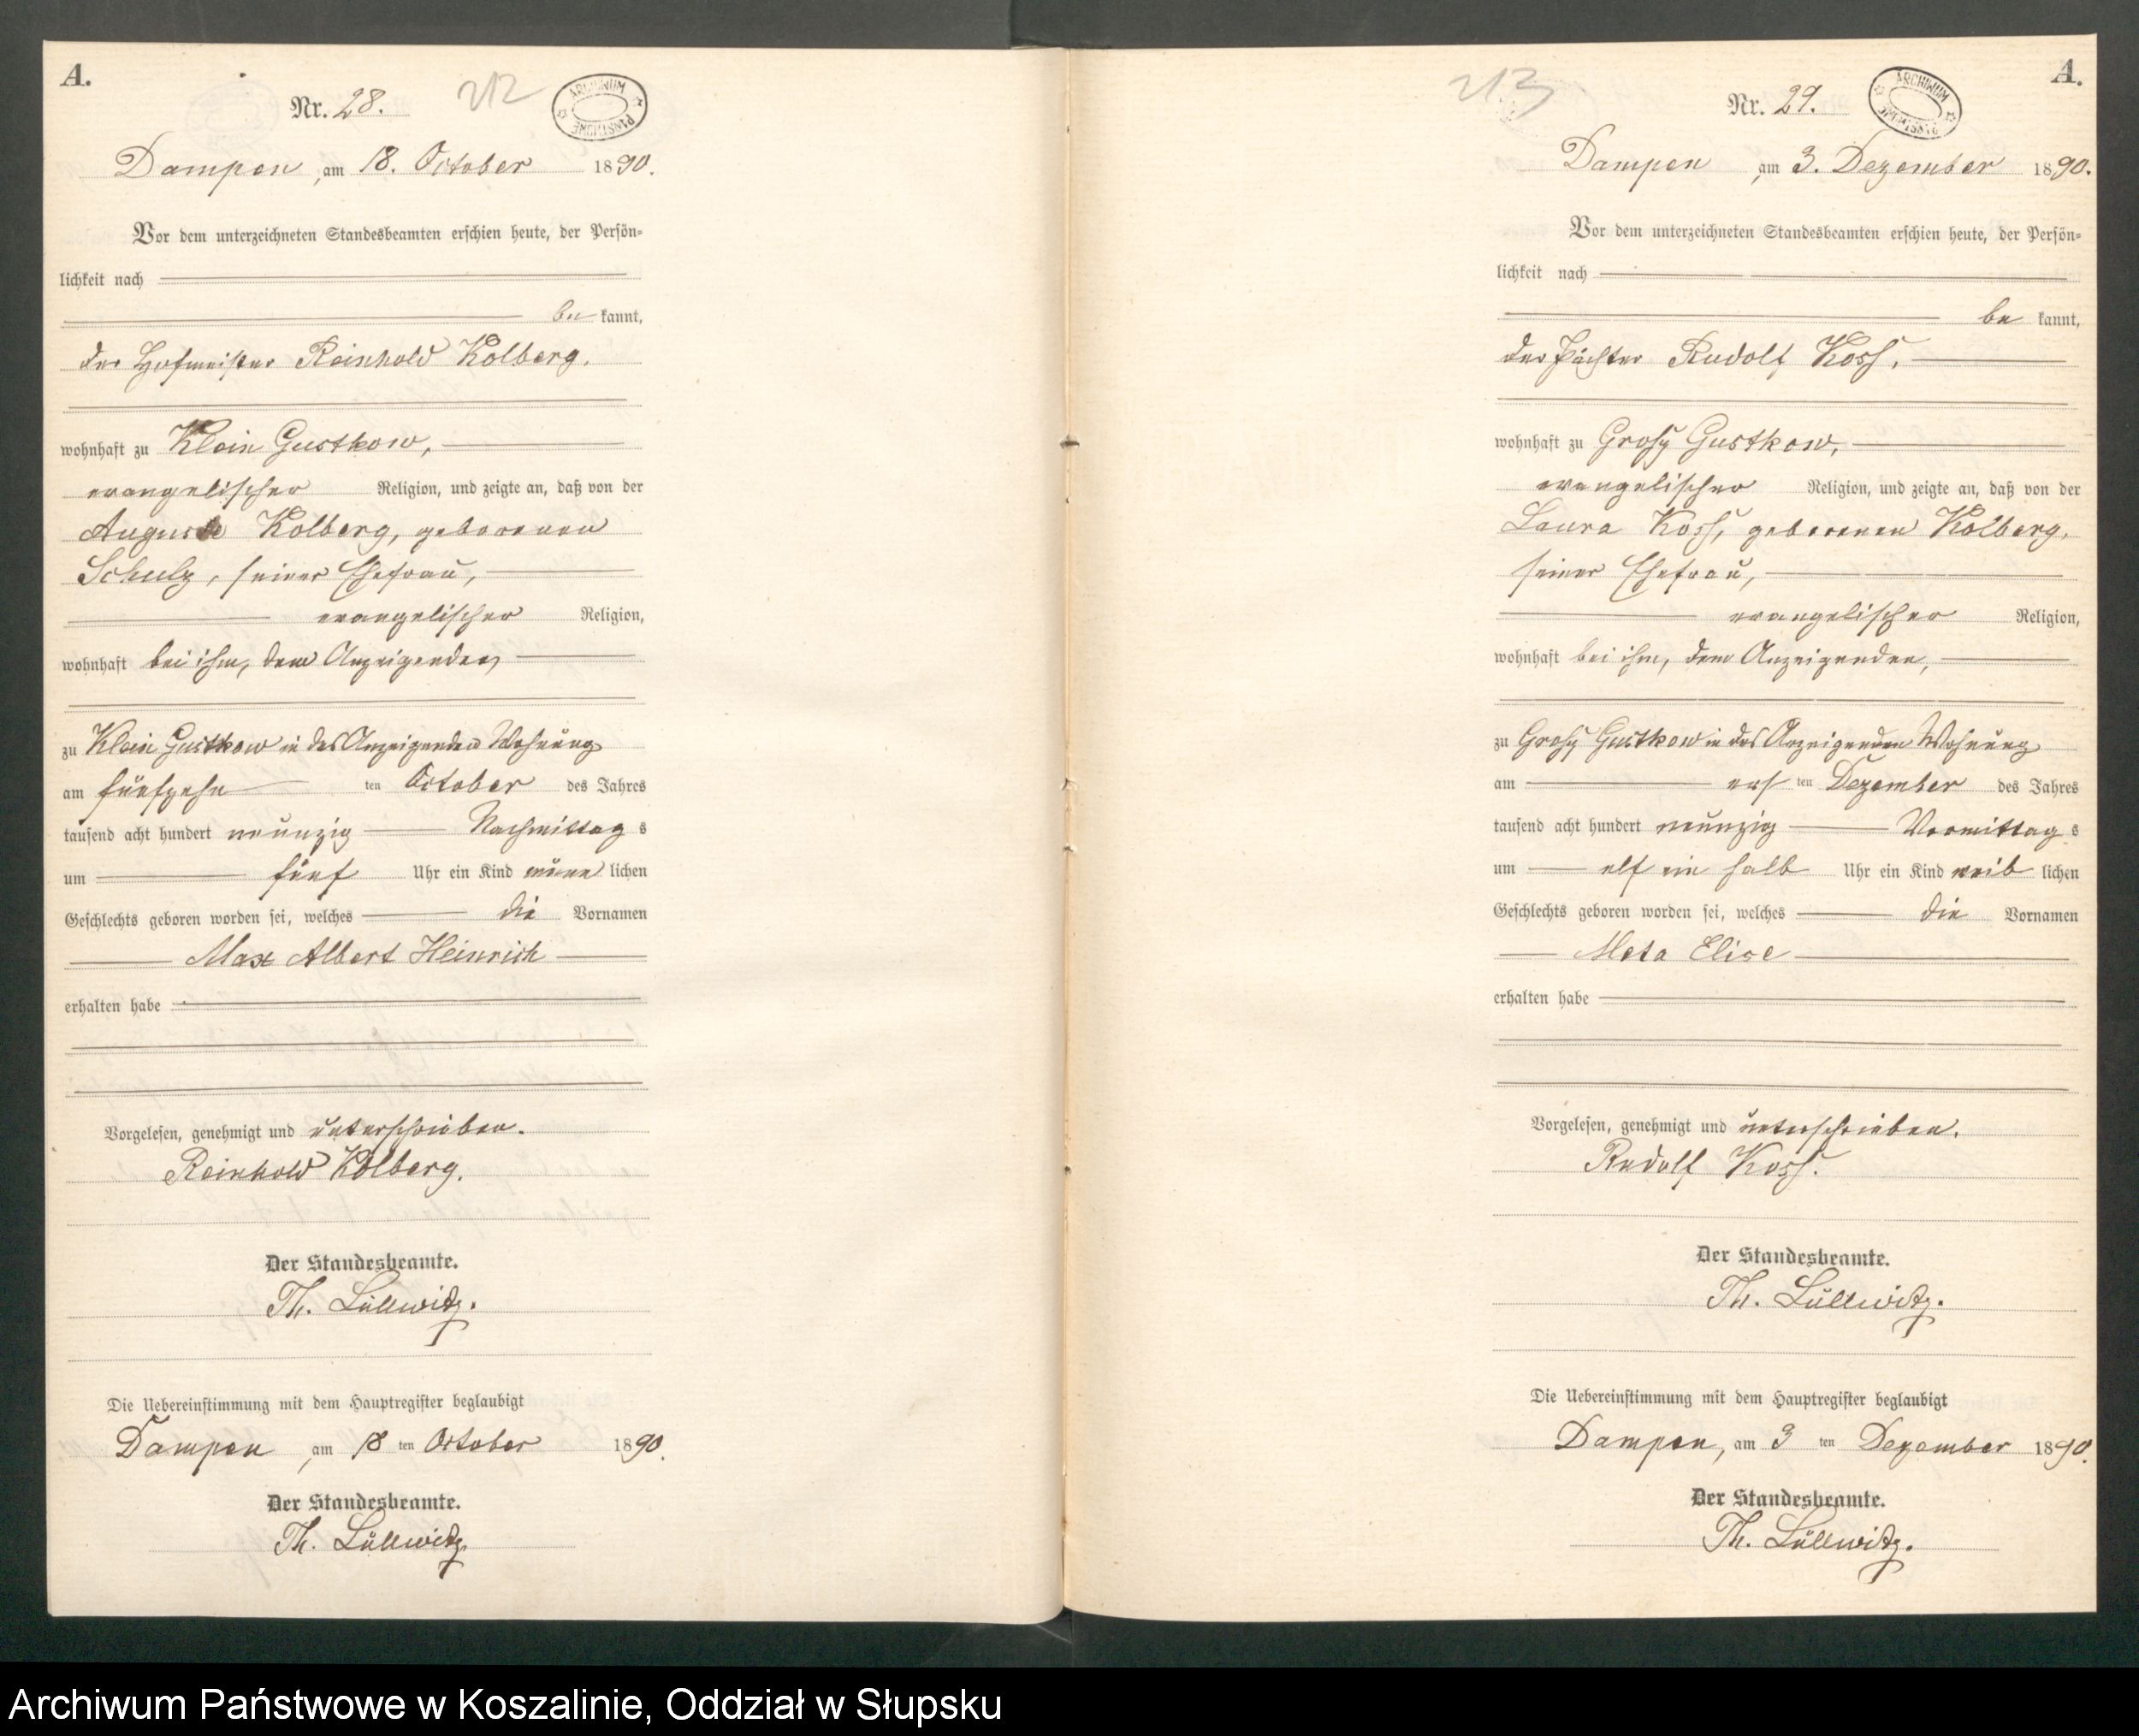 A.
Nr. 28.
212
ARCHIWUM PAŃSTWOWE
Dampen, am 18. October 1890.
Vor dem unterzeichneten Standesbeamten erschien heute, der Persön-
lichkeit nach
be kannt,
der Hofmeister Reinhold Kolberg.
wohnhaft zu Klein Gustkow,
evangelischer Religion, und zeigte an, daß von der
Auguste Kolberg, geborenen
Schulz, seiner Ehefrau,
evangelischer Religion,
wohnhaft bei ihm, dem Anzeigenden,
zu Klein Gustkow in des Anzeigenden Wohnung
am fünfzehn ten October des Jahres
tausend acht hundert neunzig Nachmittag s
um fünf Uhr ein Kind männ lichen
Geschlechts geboren worden sei, welches die Vornamen
Max Albert Heinrich
erhalten habe
Vorgelesen, genehmigt und unterschrieben.
Reinhold Kolberg.
Der Standesbeamte.
Th. Lüllwitz.
Die Uebereinstimmung mit dem Hauptregister beglaubigt
Dampen, am 18 ten October 1890.
Der Standesbeamte.
Th. Lüllwitz.
A.
213
Nr. 29.
ARCHIWUM PAŃSTWOWE
Dampen, am 3. Dezember 1890.
Vor dem unterzeichneten Standesbeamten erschien heute, der Persön-
lichkeit nach
be kannt,
der Pächter Rudolf Koss,
wohnhaft zu Gross Gustkow,
evangelischer Religion, und zeigte an, daß von der
Laura Koss, geborenen Kolberg,
seiner Ehefrau,
evangelischer Religion,
wohnhaft bei ihm, dem Anzeigenden,
zu Gross Gustkow in des Anzeigenden Wohnung
am ers ten Dezember des Jahres
tausend acht hundert neunzig Vormittag s
um elf ein halb Uhr ein Kind weib lichen
Geschlechts geboren worden sei, welches die Vornamen
Meta Elise
erhalten habe
Vorgelesen, genehmigt und unterschrieben.
Rudolf Koss.
Der Standesbeamte.
Th. Lüllwitz.
Die Uebereinstimmung mit dem Hauptregister beglaubigt
Dampen, am 3 ten Dezember 1890.
Der Standesbeamte.
Th. Lüllwitz.
Archiwum Państwowe w Koszalinie, Oddział w Słupsku